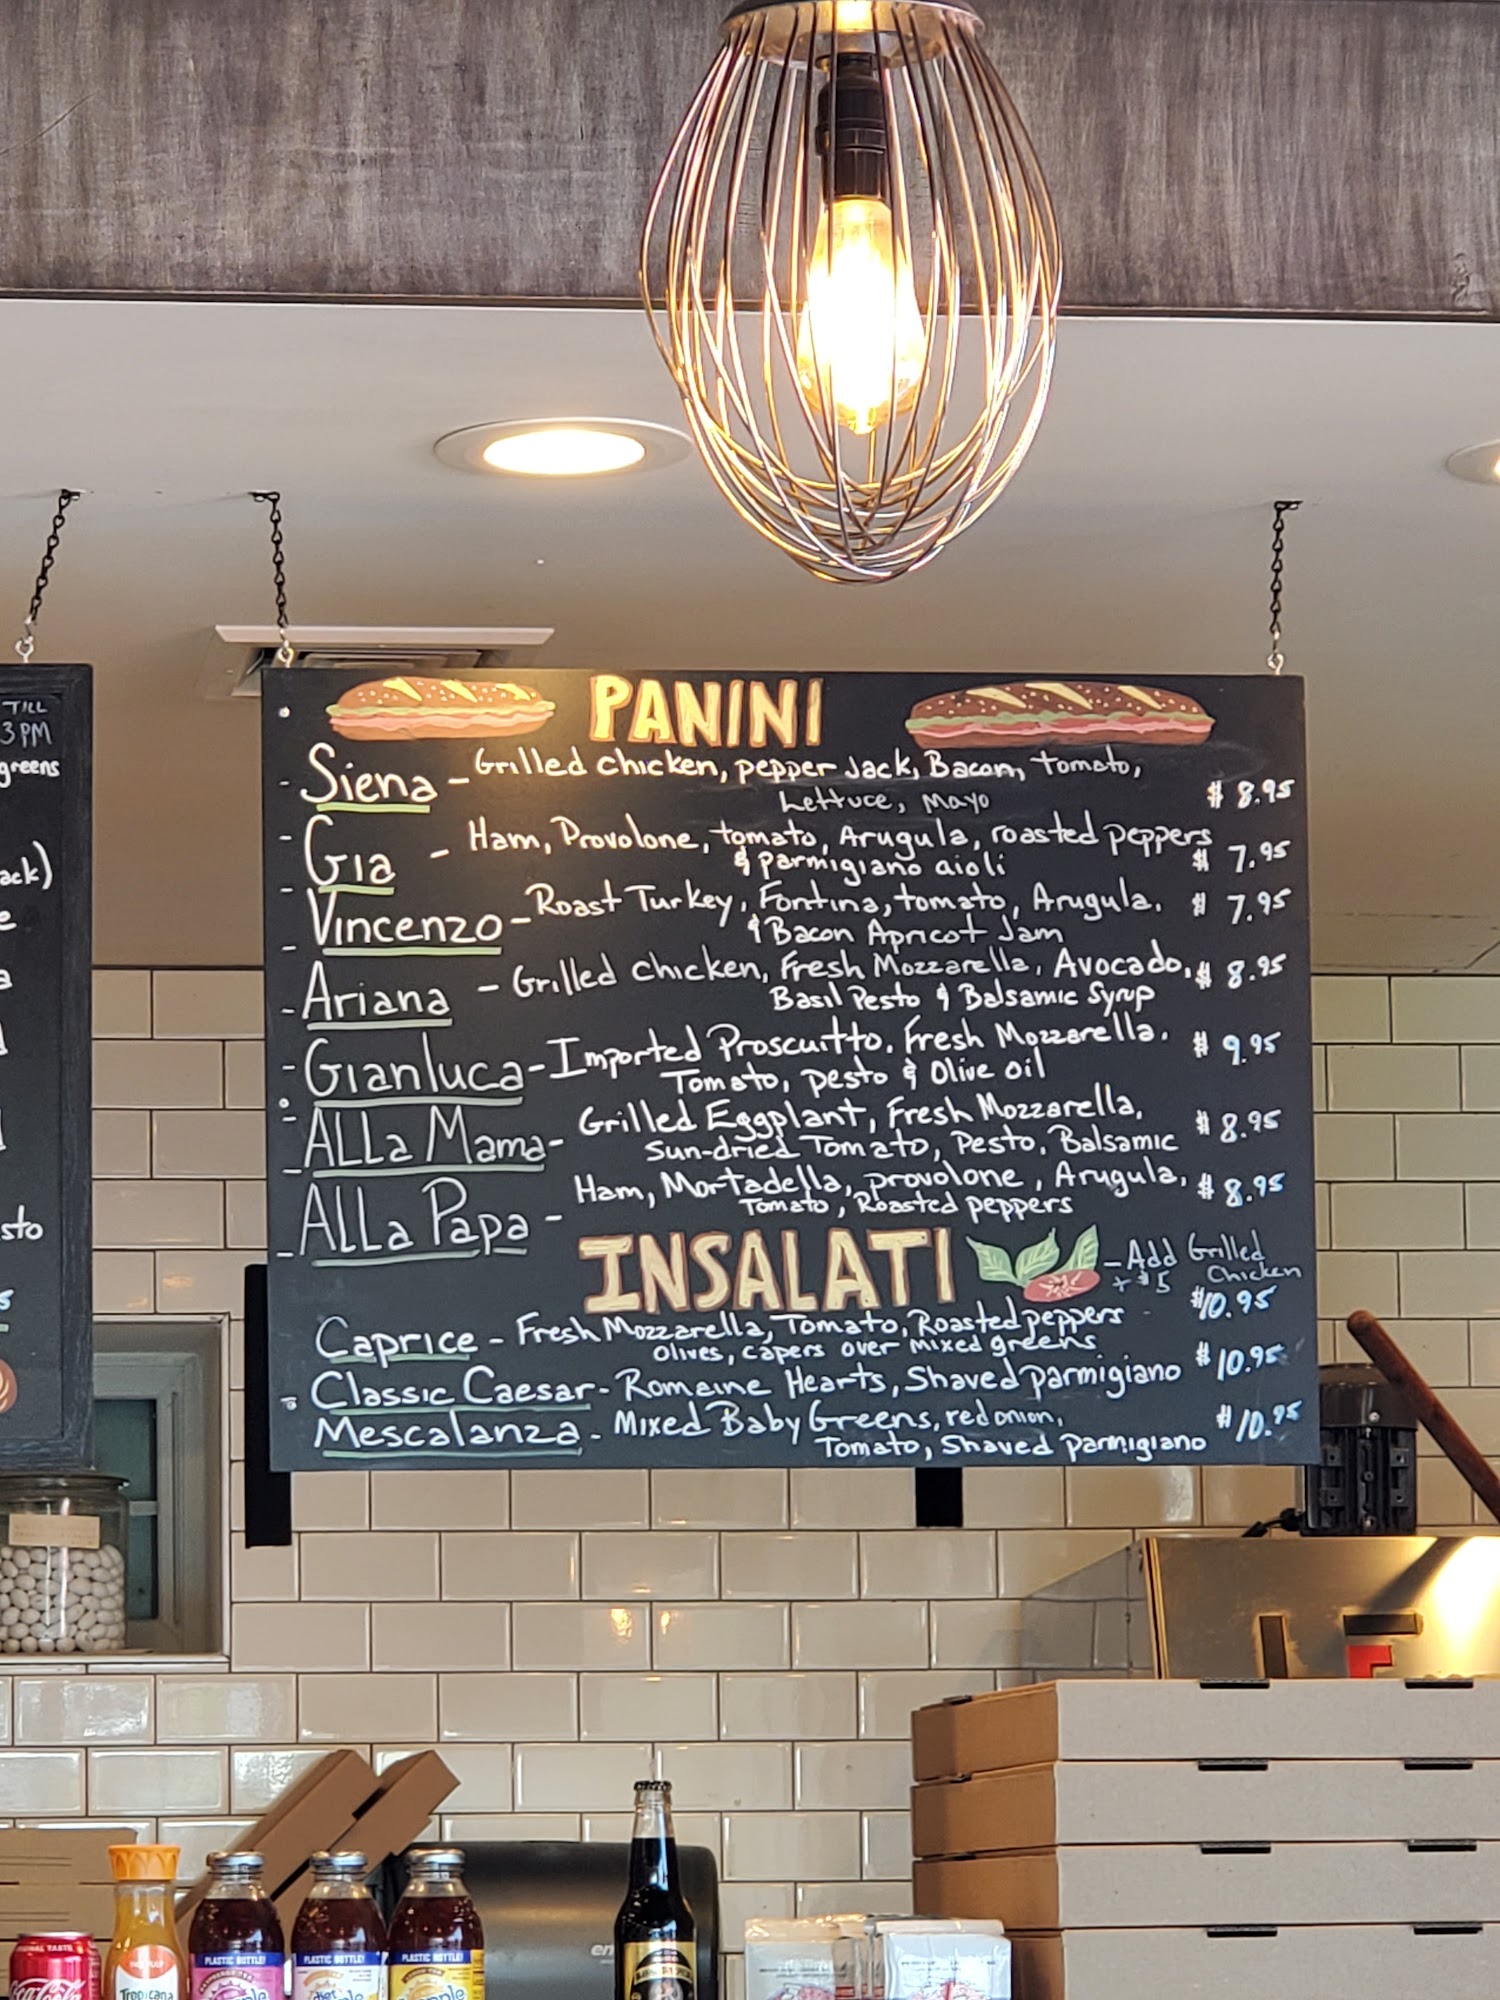 TILL
3PM
greens
ack)
sto
PANINI
Siena - Grilled chicken, pepper Jack, Bacon, tomato,
Lettuce, Mayo $ 8.95
Gia - Ham, Provolone, tomato, Arugula, roasted peppers
& parmigiano aioli $ 7.95
Vincenzo - Roast Turkey, Fontina, tomato, Arugula, $ 7.95
& Bacon Apricot Jam
Ariana - Grilled chicken, Fresh Mozzarella, Avocado, $ 8.95
Basil Pesto & Balsamic Syrup
Gianluca - Imported Proscuitto, Fresh Mozzarella, $ 9.95
Tomato, pesto & Olive oil
ALLa Mama - Grilled Eggplant, Fresh Mozzarella, $ 8.95
Sun-dried Tomato, Pesto, Balsamic
ALLa Papa - Ham, Mortadella, provolone, Arugula, $ 8.95
Tomato, Roasted peppers
INSALATI - Add Grilled
+ $5 Chicken
Caprice - Fresh Mozzarella, Tomato, Roasted peppers $10.95
Olives, capers over mixed greens
Classic Caesar - Romaine Hearts, Shaved parmigiano $10.95
Mescalanza - Mixed Baby Greens, red onion, $10.95
Tomato, Shaved parmigiano
PLASTIC BOTTLE!
PLASTIC BOTTLE!
PLASTIC BOTTLE!
Coca-Cola
Tropicana
diet